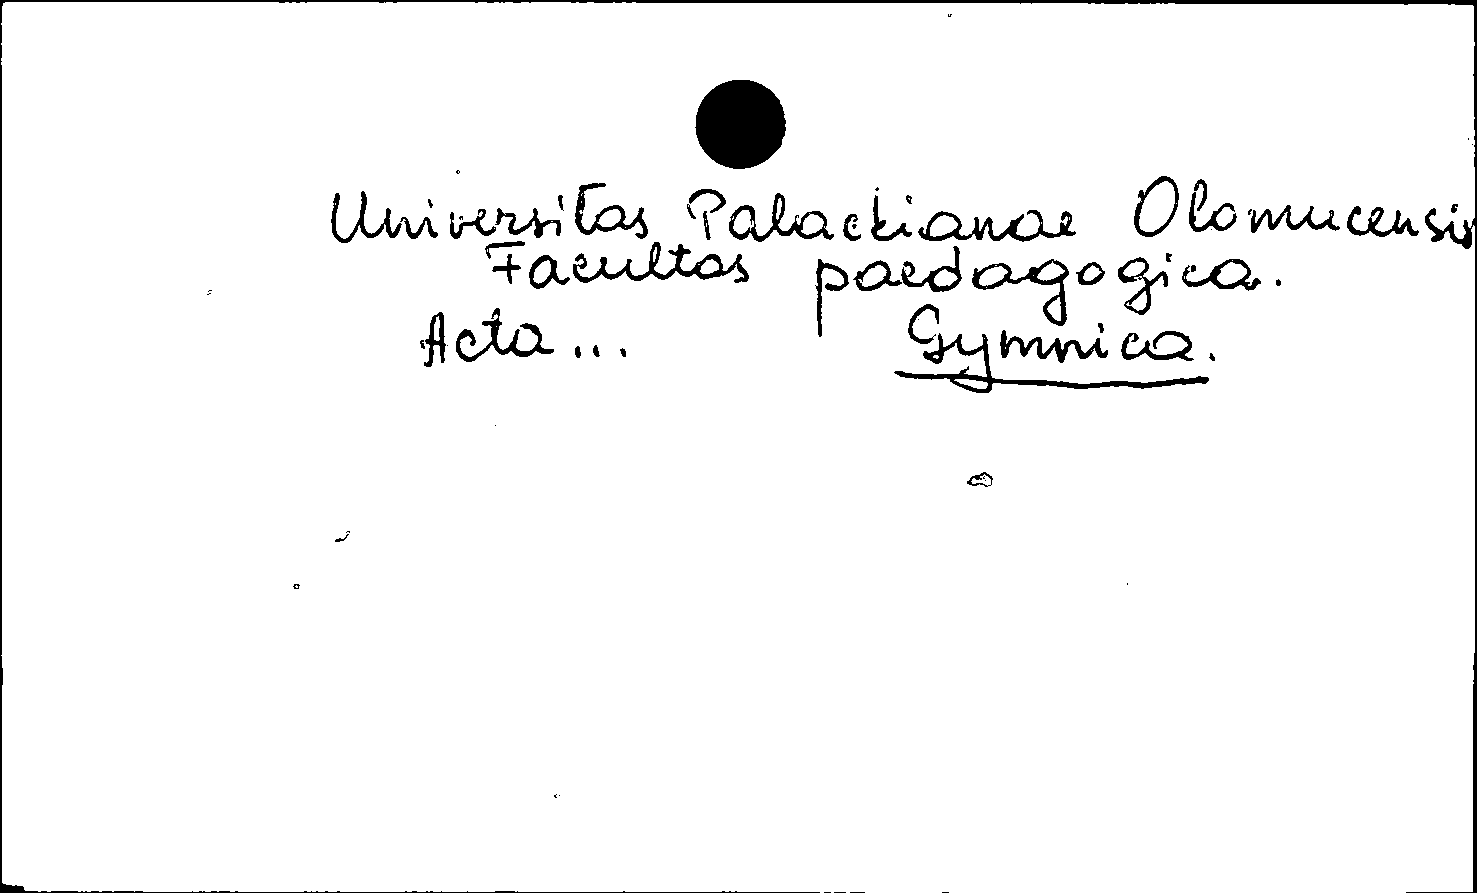 Universitas Palackianae Olomucensis
Facultas paedagogica.
Acta... Gymnica.